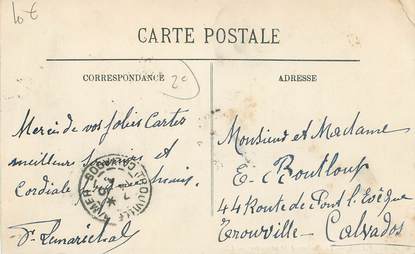 10 €
CARTE POSTALE
CORRESPONDANCE
ADRESSE
20
Merci de vos jolies Cartes
meilleurs et
Cordiale
Lemaréchal
TROUVILLE S MER
CALVADOS
Monsieur et Madame
E. Boutloup
44 Route de Pont l'Evêque
Trouville - Calvados